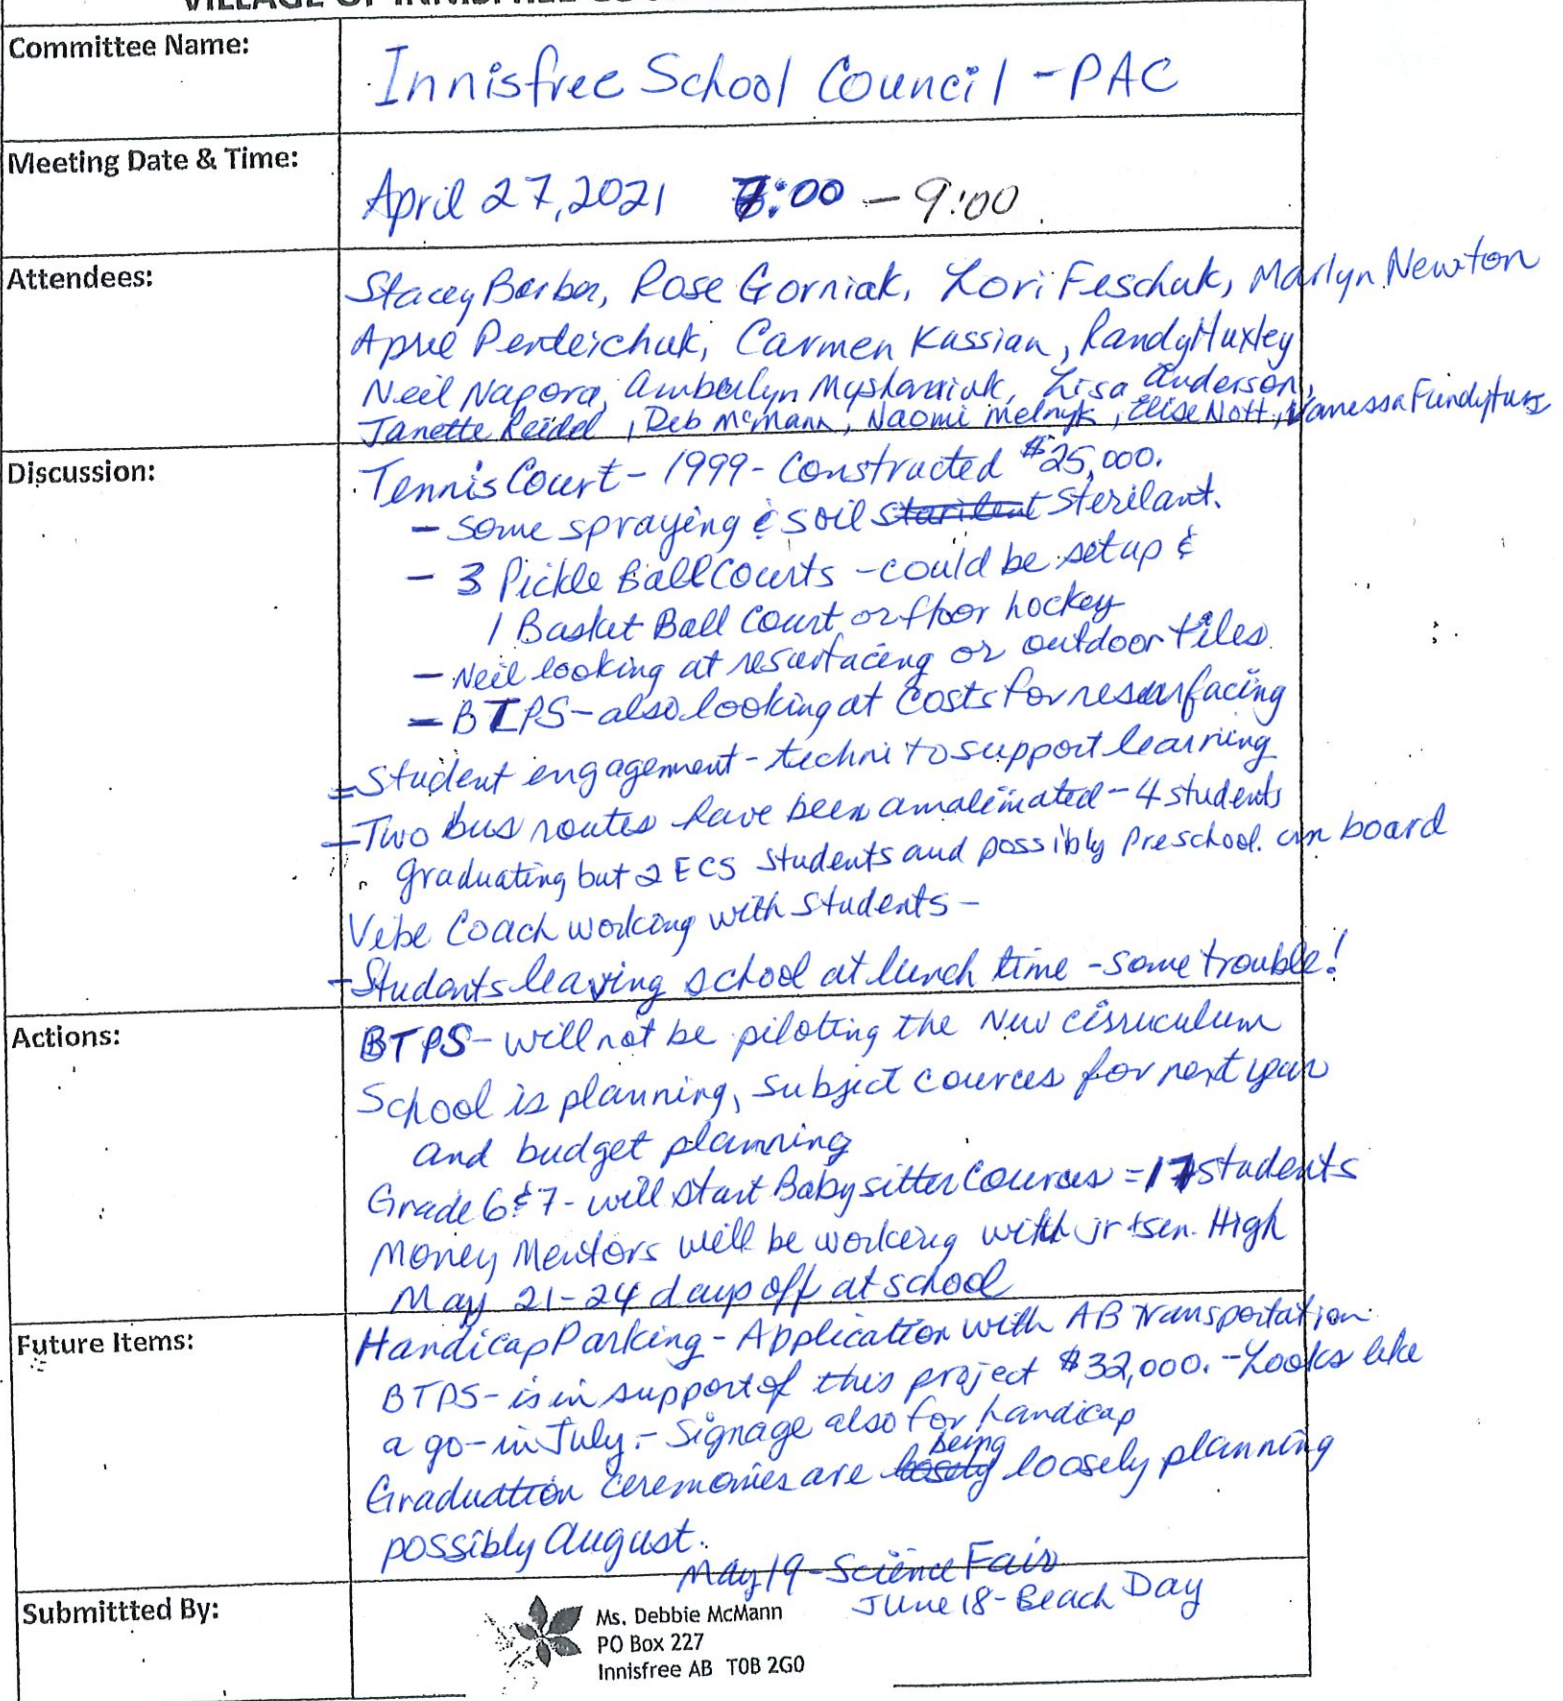 VILLAGE OF INNISFREE
Committee Name:
Innisfree School Council - PAC
Meeting Date & Time:
April 27, 2021 7:00 - 9:00
Attendees:
Stacey Barber, Rose Gorniak, Lori Feschuk, Marlyn Newton
April Perdeichuk, Carmen Kassian, Randy Huxley
Neil Napora, Amberlyn Lisa Anderson,
Janette Reidel, Deb McMann, Naomi Melnyk, Elise Nott, Vanessa
Discussion:
Tennis Court - 1999 - Constructed $25,000.
- some spraying & soil sterilant.
- 3 Pickle Ball Courts - could be setup &
1 Basket Ball Court or floor hockey
- Neil looking at resurfacing or outdoor tiles.
- BTPS - also looking at costs for resurfacing
= Student engagement - techni to support learning
- Two bus routes have been amalimated - 4 students
graduating but 2 ECS students and possibly Preschool. can board
Vibe Coach working with students -
- Students leaving school at lunch time - some trouble!
Actions:
BTPS - will not be piloting the New cirruculum
School is planning, subject cources for next year
and budget planning
Grade 6 & 7 - will start Babysitter Cources = 17 students
Money Mentors will be working with jr + sen. High
May 21-24 days off at school
Future Items:
Handicap Parking - Application with AB Transportation.
BTPS - is in support of this project $32,000. - Looks like
a go - in July. - Signage also for handicap
being
Graduation ceremonies are loosely loosely planning
possibly August.
May 19 - Science Fair
June 18 - Beach Day
Submittted By:
Ms. Debbie McMann
PO Box 227
Innisfree AB T0B 2G0